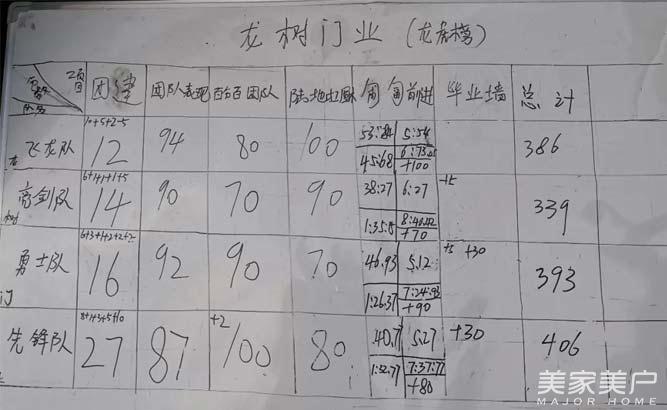 龙树门业(龙虎榜)
项目
队名
团建 团队表现 百百团队 陆地 前进 毕业墙 总计
飞龙队
10+5+2-5
12 94 80 100 53:84 5:54 386
45:68 6:73.05
+100
亮剑队
6+1+1+1+5
14 90 70 90 38:27 6:27 +5 339
1:35:8 8:40.42
+70
勇士队
6+3+1+2+2+2
16 92 90 70 46.93 5.12 +5 +30 393
1:26.37 7:24:93
+90
先锋队
8+1+3+5+10
27 87 +2 100 80 40.7 5.27 +30 406
1:32.77 7:37:77
+80
美家美户
MAJOR HOME